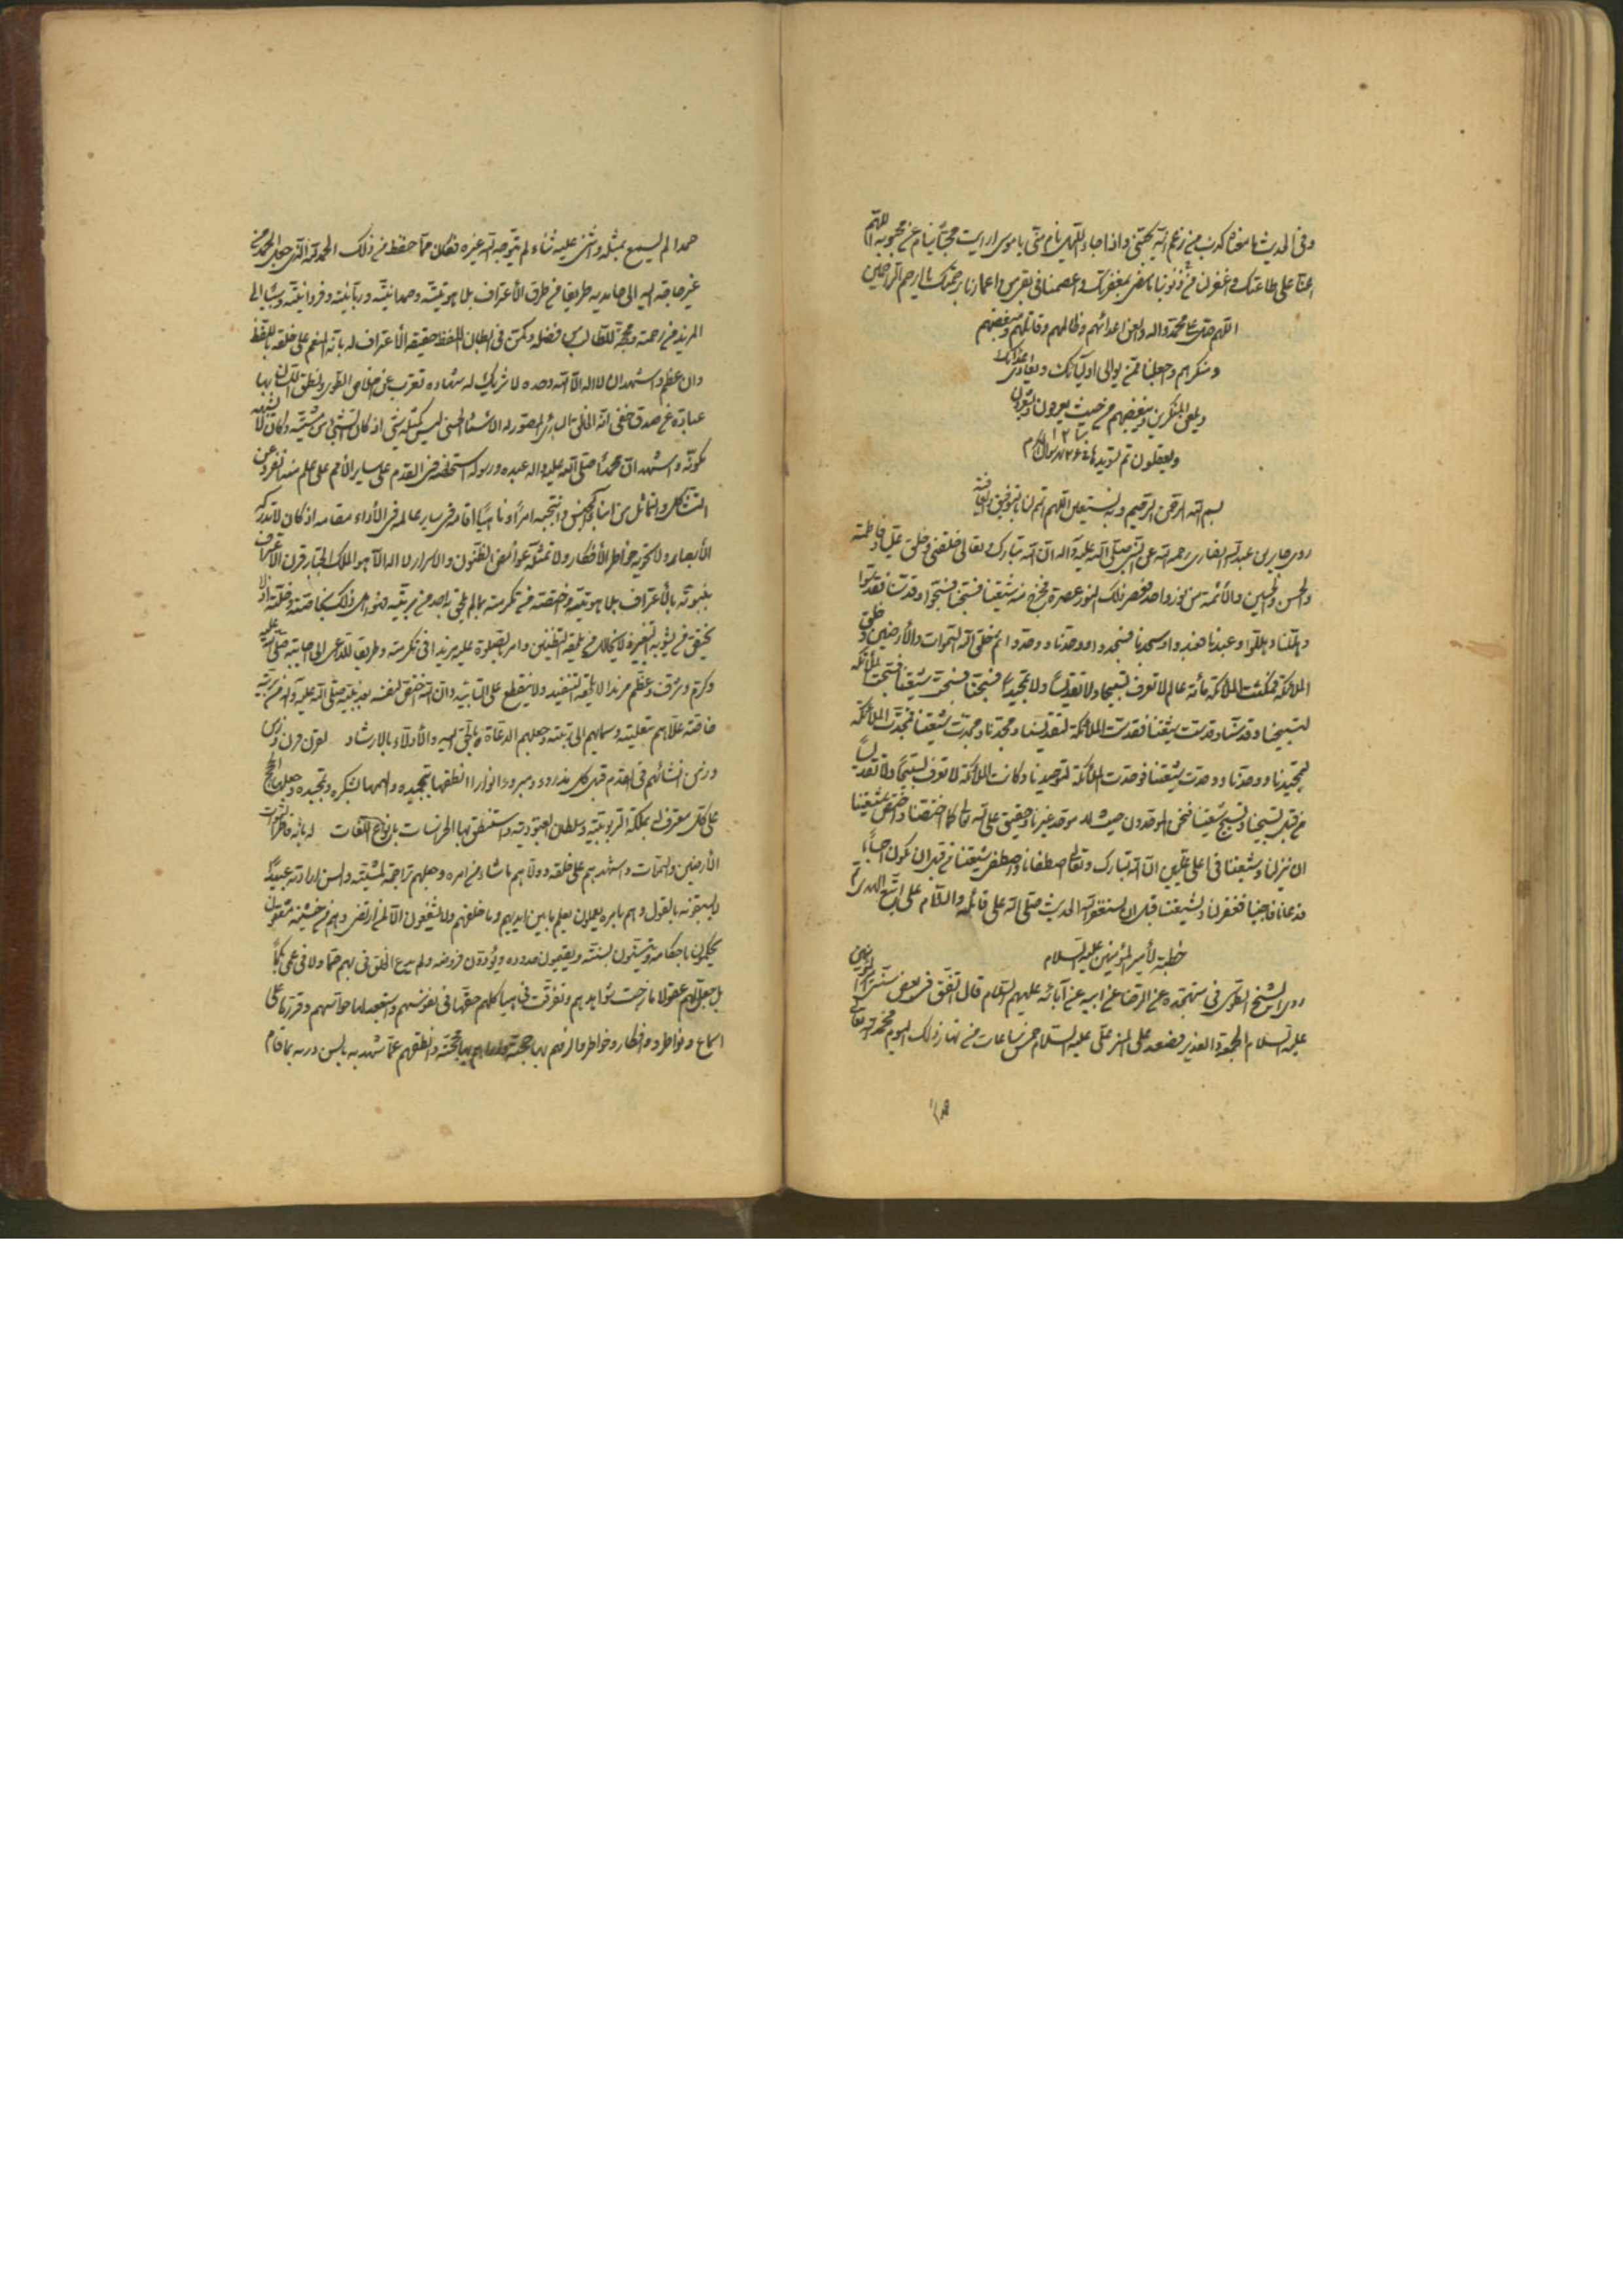 وفى الحديث ما معناه كذب من زعم انه يحبنى واذا جاء الليل نام عنى يا موسى ارايت محبا ينام عن محبوبه اللهم
اعنا على طاعتك واغفر لنا من ذنوبنا ما مضى بمغفرتك واعصمنا فى ما بقى من اعمارنا برحمتك يا ارحم الراحمين
اللهم صل على محمد واله والعن اعدائهم وظالمهم وقاتلهم ومبغضهم
ومنكرهم واجعلنا ممن يوالى اوليائك ويعادى اعدائك
ويلعن المنكرين ومبغضهم من حيث يعرفون ويشعرون
ويعقلون تم تسويدها
بسم الله الرحمن الرحيم وبه نستعين اللهم اتمم لنا بتوفيق والعافية
روى جابر بن عبد الله انصارى رحمه الله عن النبى صلى الله عليه واله ان الله تبارك وتعالى خلقنى وخلق على وفاطمة
والحسن والحسين والائمة من نور واحد فعصر ذلك النور عصرة فخرج منه شيعتنا فسبحنا فسبحوا وقدسنا فقدسوا
وهللنا وهللوا وعبدنا فعبدوا ومجدنا فمجدوا ووحدنا ووحدوا ثم خلق الله السموات والارضين وخلق
الملائكة فمكثت الملائكة مائة عام لا تعرف تسبيحا ولا تقديسا ولا تمجيدا فسبحنا فسبحت شيعتنا فسبحت الملائكة
لتسبيحنا وقدسنا وقدست شيعتنا فقدست الملائكة لتقديسنا ومجدنا ومجدت شيعتنا فمجدت الملائكة
لتمجيدنا ووحدنا ووحدت شيعتنا فوحدت الملائكة لتوحيدنا وكانت الملائكة لا تعرف تسبيحا ولا تقديسا
من قبل تسبيحنا وتسبيح شيعتنا فنحن الموحدون حيث لا موحد غيرنا وحقيق على الله تعالى كما اختصنا واختص شيعتنا
ان ينزلنا وشيعتنا فى اعلى عليين ان الله تبارك وتعالى اصطفانا واصطفى شيعتنا من قبل ان نكون اجساما
فدعانا فاجبنا فغفر لنا ولشيعتنا قبل ان نستغفر الله الحديث صلى الله على قائله والسلام على من اتبع الهدى تم
خطبة لأمير المؤمنين عليه السلام
روى الشيخ الطوسى فى متهجده عن الرضا عن ابيه عن آبائه عليهم السلام قال اتفق فى بعض سنى امير المؤمنين
عليه السلام الجمعة والغدير فصعد على المنبر على عليه السلام خمس ساعات من نهار ذلك اليوم فحمد الله تعالى
حمدا لم يسمع بمثله واثنى عليه ثناء لم يتوجه اليه غيره فكان مما حفظ من ذلك الحمد لله الذى جعل الحمد من
غير حاجة اليه الى حامديه طريقا من طرق الأعتراف بلاهوتيته وصمدانيته وربانيته وفردانيته وسببا الى
المزيد من رحمته ومحجة للطالب من فضله وكمن فى ابطان اللفظ حقيقة الأعتراف له بانه المنعم على خلقه باللفظ
وان عظم واشهد ان لا اله الا الله وحده لا شريك له شهادة نزعت عن اخلاص الطوى ونطق اللسان بها
عبارة عن صدق خفى انه الخالق البارئ المصور له الاسماء الحسنى ليس كمثله شئ اذ كان الشئ من مشيته وكان لا يشبهه
مكونه واشهد ان محمدا صلى الله عليه واله عبده ورسوله استخلصه فى القدم على ساير الأمم على علم منه انفرد عن
التشاكل والتماثل من ابناء الجنس وانتجبه امرا وناهيا اقامه فى ساير عالمه فى الأداء مقامه اذ كان لا تدركه
الأبصار ولا تحويه خواطر الأفكار ولا تمثله غوامض الظنون والاسرار لا اله الا هو الملك الجبار قرن الاعتراف
بنبوته بالأعتراف بلاهوتيته واختصه من تكرمته بما لم يلحقه فيه احد من بريته فهو اهل ذلك بخاصته وخلته اذ لا
يختص من يشوبه التغيير ولا يخالل من يلحقه التظنين وامر بالصلوة عليه مزيدا فى تكرمته وطريقا للداعى الى اجابته صلى الله عليه
وكرم وشرف وعظم مزيدا لا يلحقه التنفيد ولا ينقطع على التابيد وان الله اختص لنفسه بعد نبيه صلى الله عليه واله من بريته
خاصة علاهم بتعليته وسما بهم الى رتبته وجعلهم الدعاة بالحق اليه والأدلاء بالارشاد
انشائهم فى القدم قبل كل مذروء ومبروء انوارا انطقها بتحميده والهمها بشكره وتمجيده وجعلها الحجج
على كل معترف له بملكة الربوبيته وسلطان العبودية واستنطق بها الخرسات بانواع اللغات له بانه فاطر
الارضين والسموات واشهدهم على خلقه وولاهم ما شاء من امره وجعلهم تراجمة مشيته والسن ارادته عبيدا
لا يسبقونه بالقول وهم بامره يعملون يعلم ما بين ايديهم وما خلفهم ولا يشفعون الا لمن ارتضى وهم من خشيته مشفقون
يحكمون باحكامه ويستنون بسنته ويقيمون حدوده ويؤدون فروضه ولم يدع الخلق فى بهم صما ولا فى عمى بكما
بل جعل لهم عقولا مازجت شواهدهم وتفرقت فى هياكلهم حققها فى نفوسهم واستعبد لها حواسهم وقررتها على
اسماع ونواظر وافكار وخواطر الزمهم بها حجته واراهم بها محجته وانطقهم عما تشهد به بالسن دربه بما قام